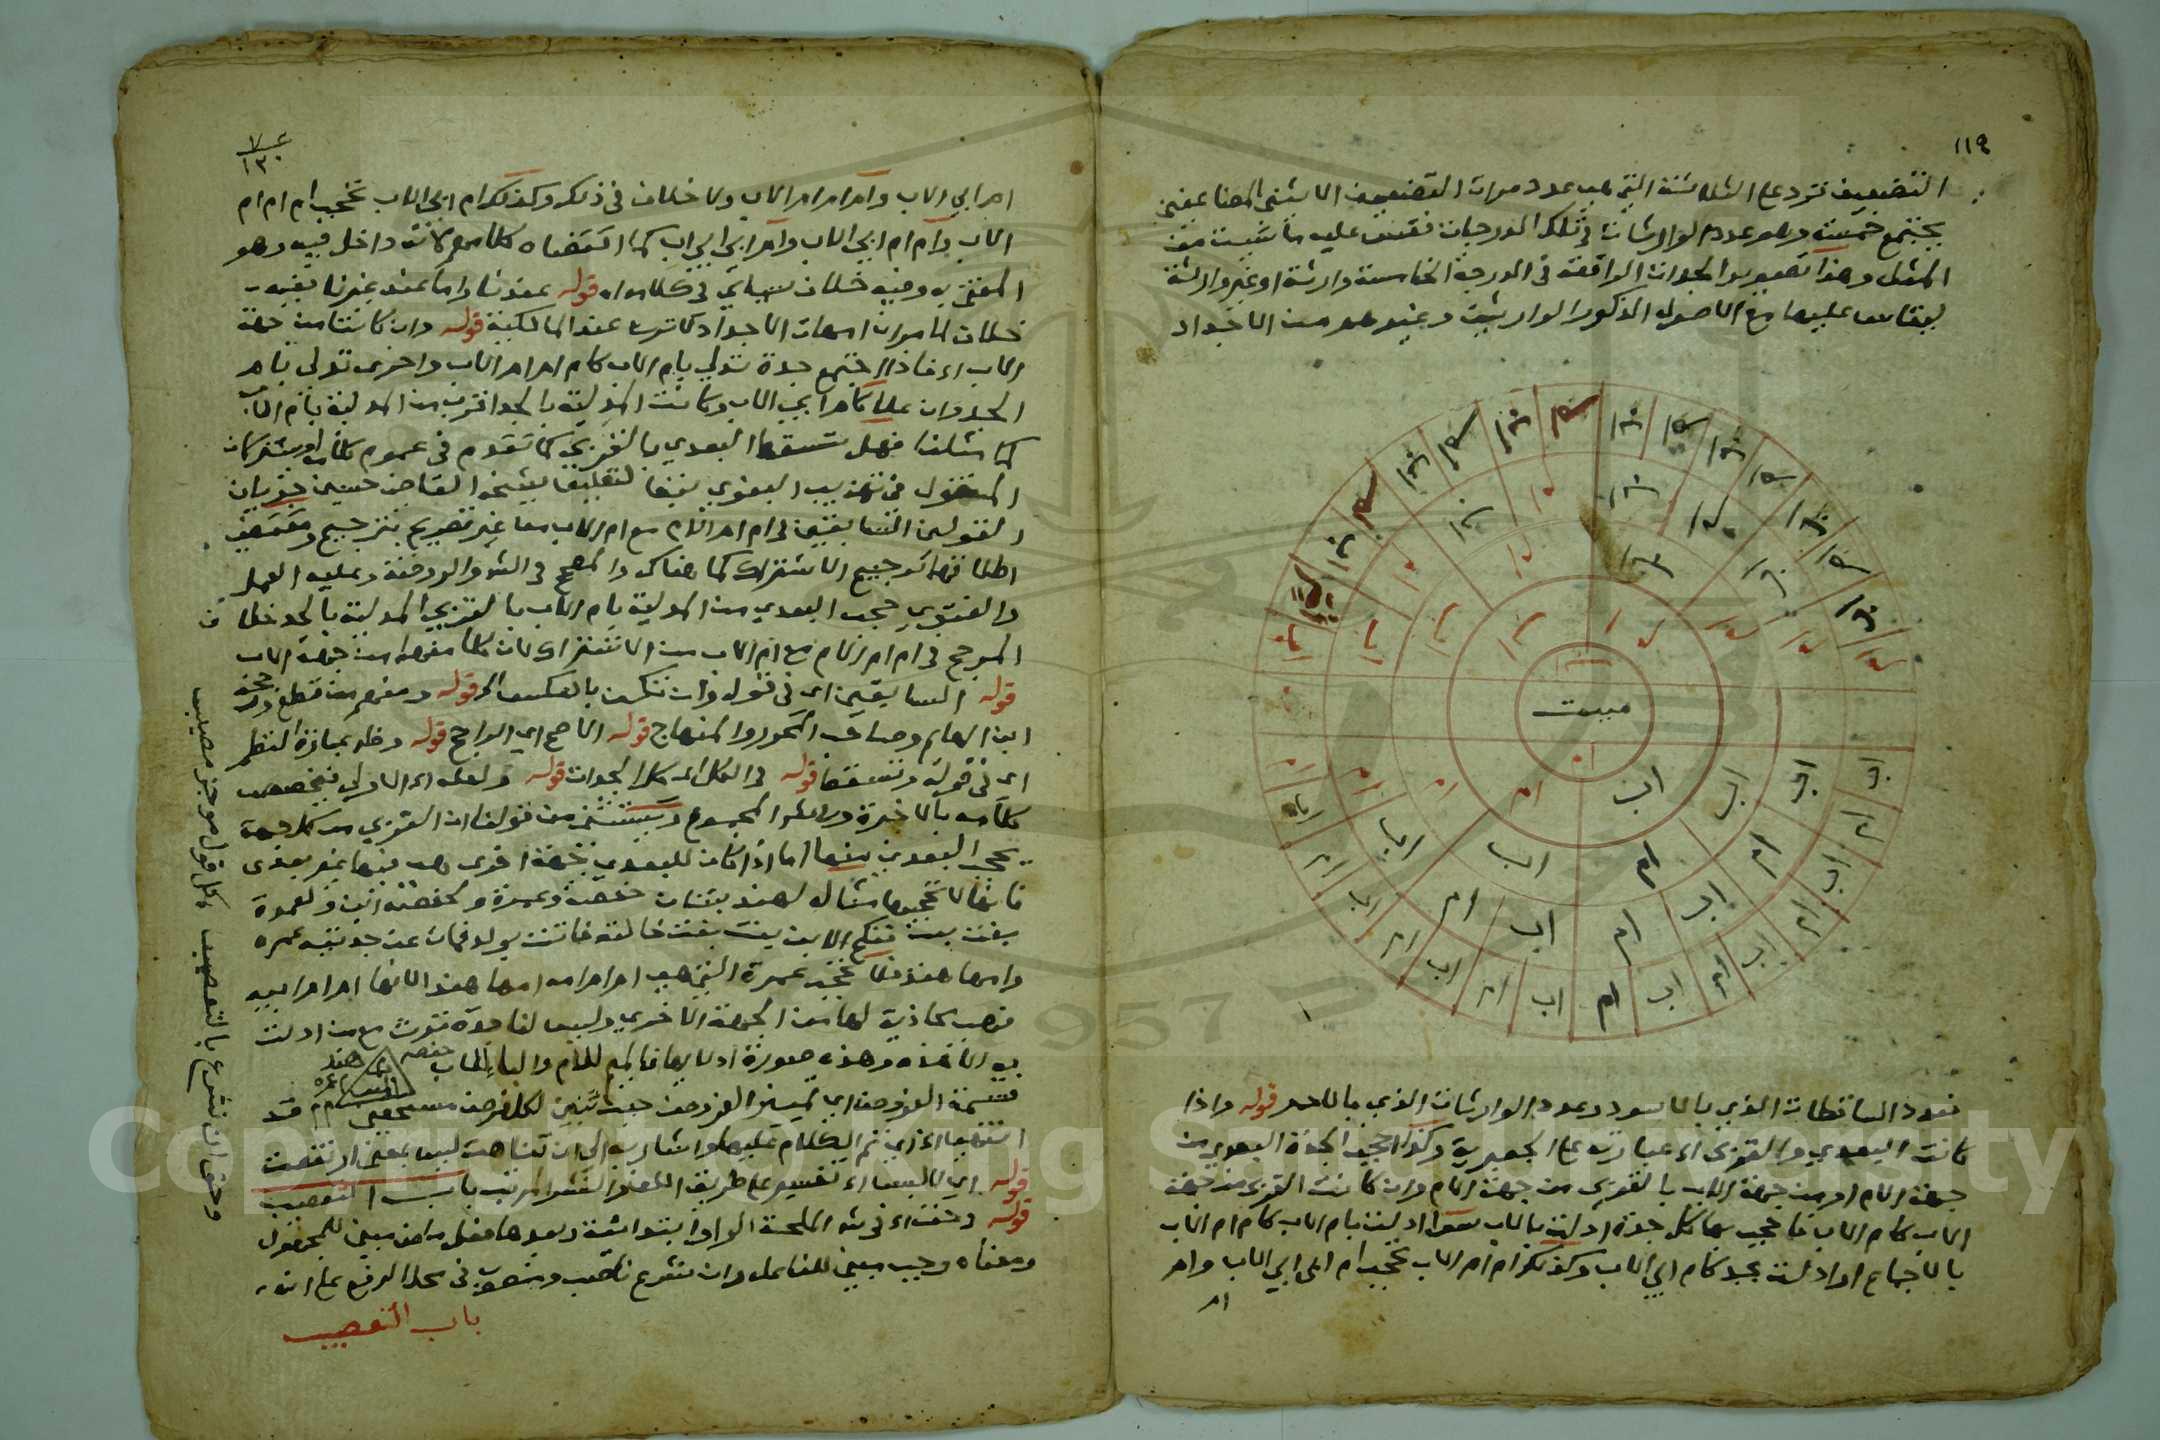 ١١٩
التضعيف تزد على الثلاثة التي هي عدد مرات التضعيف الاثنى المضا بمعنى
يجتمع خمسة وهو عدد الوارثات في تلك الدرجات فقس عليه ما شئت من
المثل وهذا تصوير الجدات الواقعة في الدرجة الخامسة وارثة او غير وارثة
يقاس عليها مع الاصول الذكور الوارثين وغيرهم من الاجداد
ميت
اب
ام
فعدد الساقطات الذي بالاسود وعدد الوارثات الذي بالاحمر قوله واذا
كانت البعدي والقربى اء عبارته على الجعبرية وكذا تحجب الجدة البعدي من
جهة الام او من جهة الاب بالقربى من جهة الام وان كانت القربى من جهة
الاب كام الاب فاحجب بها كل جدة ادلت بالاب سوا ادلت بام الاب كام ام الاب
بالاجماع او ادلت بجد كام ابي الاب وكذلك ام ام الاب تحجب ام ام ابي الاب وام
ام
١٣٠
ام ابي الاب وام ام ام الاب ولا خلاف في ذلك وكذلك ام ابي الاب تحجب ام ام ام
الاب وام ام ابي الاب وام ابي ابي اب كما اقتضاه كلامهم كانت داخل فيه وهو
المفتى به وفيه خلاف سيأتي في كلامه اه قوله عندنا واما عند غيرنا ففيه
خلاف لما مر ان امهات الاجداد لا ترث عند المالكية قوله وان كانتا من جهة
الاب اء فاذا اجتمع جدة تدلي بام الاب كام ام ام الاب واخرى تدلي بام
الجد وان علا كام ابي الاب وكانت المدلية بالجد اقرب من المدلية بام الاب
كما مثلنا فهل تسقط البعدي بالقربى كما تقدم في عموم كلامه او يشتركان
المنقول في تهذيب البغوي تبعا لتعليقة شيخه القاضي حسين جريان
القولين السابقين في ام ام الام مع ام الاب من غير تصريح بترجيح ومقتضى
اطلاقهما ترجيح الاشتراك كما هناك والاصح في الشرح والروضة وعليه العمل
والفتوى حجب البعدي من المدلية بام الاب بالقربى المدلية بالجد خلاف
المرجح في ام ام الام مع ام الاب من الاشتراك لان كلا منهما من جهة الاب
قوله السابقين اي في قوله وان تكن بالعكس الخ قوله ومنهم من قطع
ابن الهايم وصاحب المحرر والمنهاج قوله الاصح اي الراجح قوله وظاهر عبارة النظم
اي في قوله وتسقط قوله في الكل اي كل الجدات قوله ولعله اء الاولى تخصيص
كلامه بالاخيرة ويستثنى من قولنا ان القربى من كل جهة
تحجب البعدي منها اما اذا كان للبعدي جهة اخرى
فانها لا تحجبها مثاله لهند بنتان حفصة وعمرة ولحفصة ابن ولعمرة
بنت بنت فنكح الابن بنت بنت خالته فاتت بولد فمات عن جدتيه عمرة
وامها هند فلا تحجب عمرة التي هي ام ام امه امها هند لانها ام ام ابيه
فهي محاذية لها من الجهة الاخرى وليس لنا جدة ترث مع من ادلت
به الا هذه وهذه صورة اولادها فالميم للام والبا للاب
حفصه هند عمره
قسمة الفروض اي تمييز الفروض حيث تبين لكل فرض مستحق قد
انتهت اء اي تم الكلام عليها واشار به الى ان تناهت ليس بمعنى ارتفعت
قوله اي لا لبس اء تفسير على طريق اللف والنشر المرتب باب التعصيب
قوله وحق اء في شرح الملحة الواو ابتدائية وبعدها فعل ماض مبني للمجهول
ومعناه وجب مبني للفاعل وان نشرع ناصب ومنصوب في محل الرفع على انه
باب التعصيب
وحق ان نشرع بالتعصيب بكل قول موجز مصيب